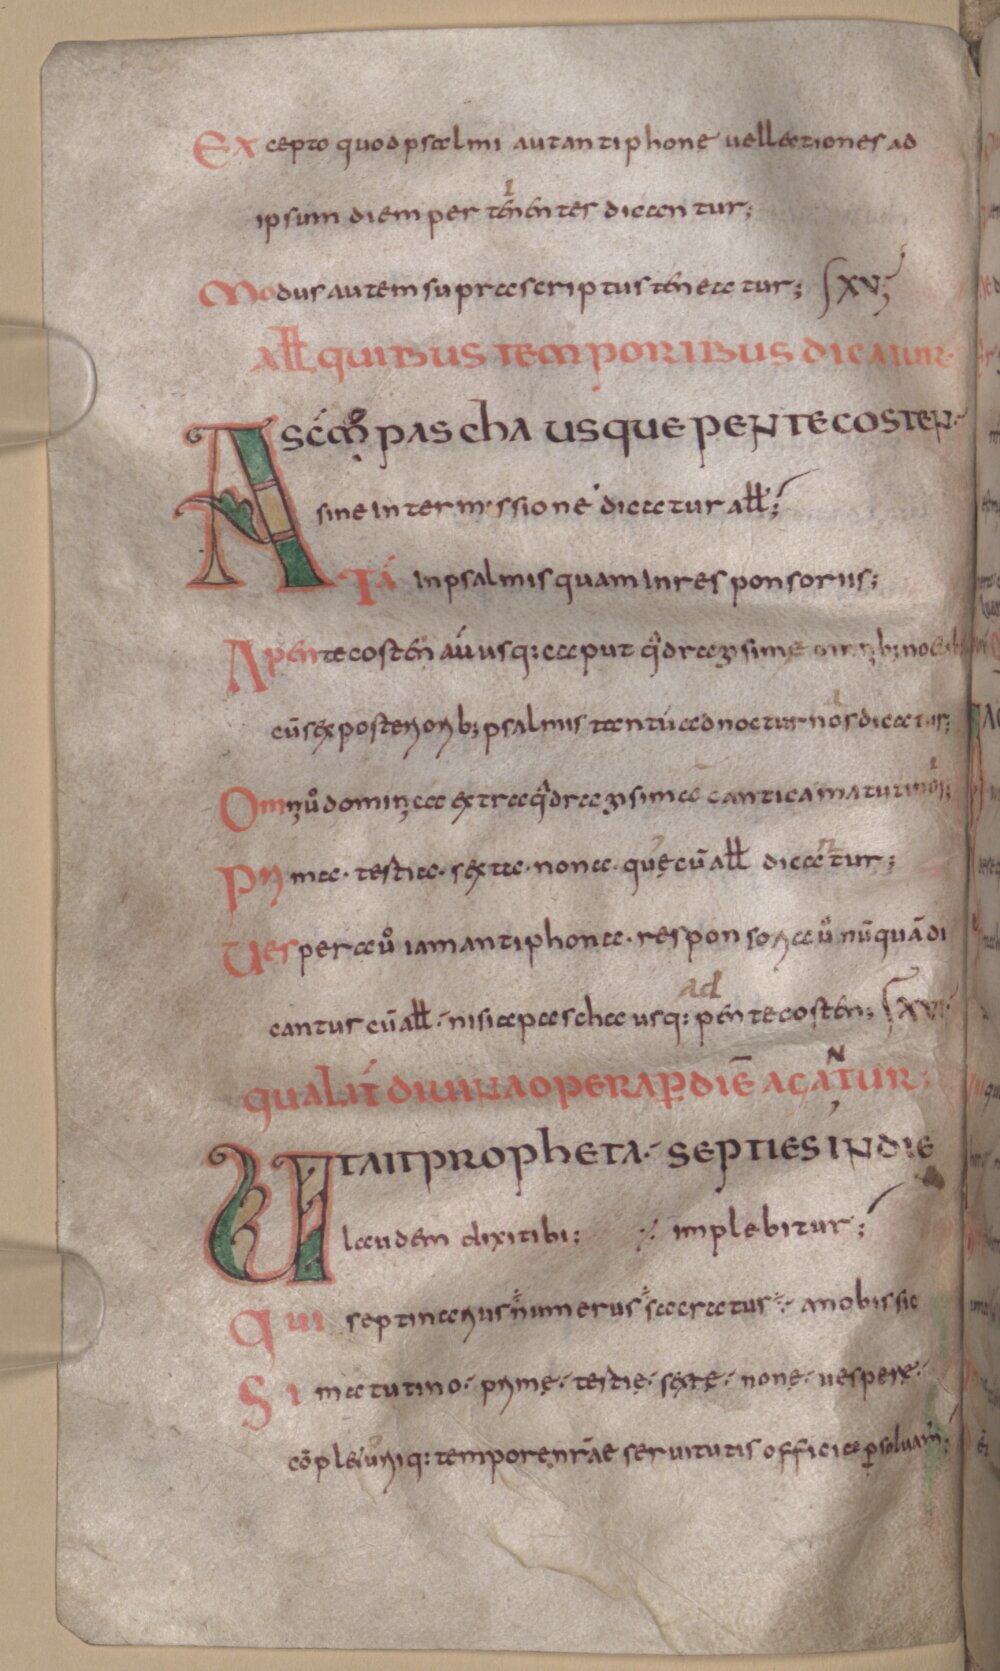 Excepto quod psalmi aut antiphonę uel lectiones ad
ipsum diem pertenentes dicantur;
Modus autem supra scriptus teneatur; XV;
ałł quibus temporibus dicatur.
A scm pascha usque pentecosten.
sine intermissione dicatur ałł;
Tā in psalmis quam in responsoriis;
A pentecosten aū usq: caput qdragisime
cū sex posteriorib; psalmis tantū ad nocturnos dicatur;
Omni uo dominica extra qdragisima cantica matutinor;
Prima. tertia. sexta. nona. quę cū ałł dicatur;
Uespera uo iam antiphona. responsoria uo nūquā di
cantur cū ałł. nisi a pascha usq: ad pentecosten; XVI
qualit diuina opera p diē agatur;
Ut ait propheta. septies in die
laudem dixi tibi; implebitur;
Qui septinarius numerus sacratus. a nobis sic
Si matutino. primę. tertię. sextę. nonę. uesperę.
cōple uriq: tempore nrāe seruitutis officia psoluam;